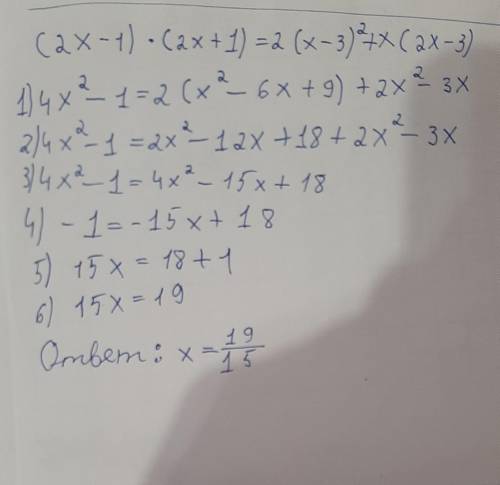 (2x-1)·(2x+1)=2(x-3)²+x(2x-3)
1) 4x²-1=2(x²-6x+9)+2x²-3x
2) 4x²-1=2x²-12x+18+2x²-3x
3) 4x²-1=4x²-15x+18
4) -1=-15x+18
5) 15x=18+1
6) 15x=19
Ответ: x=19/15